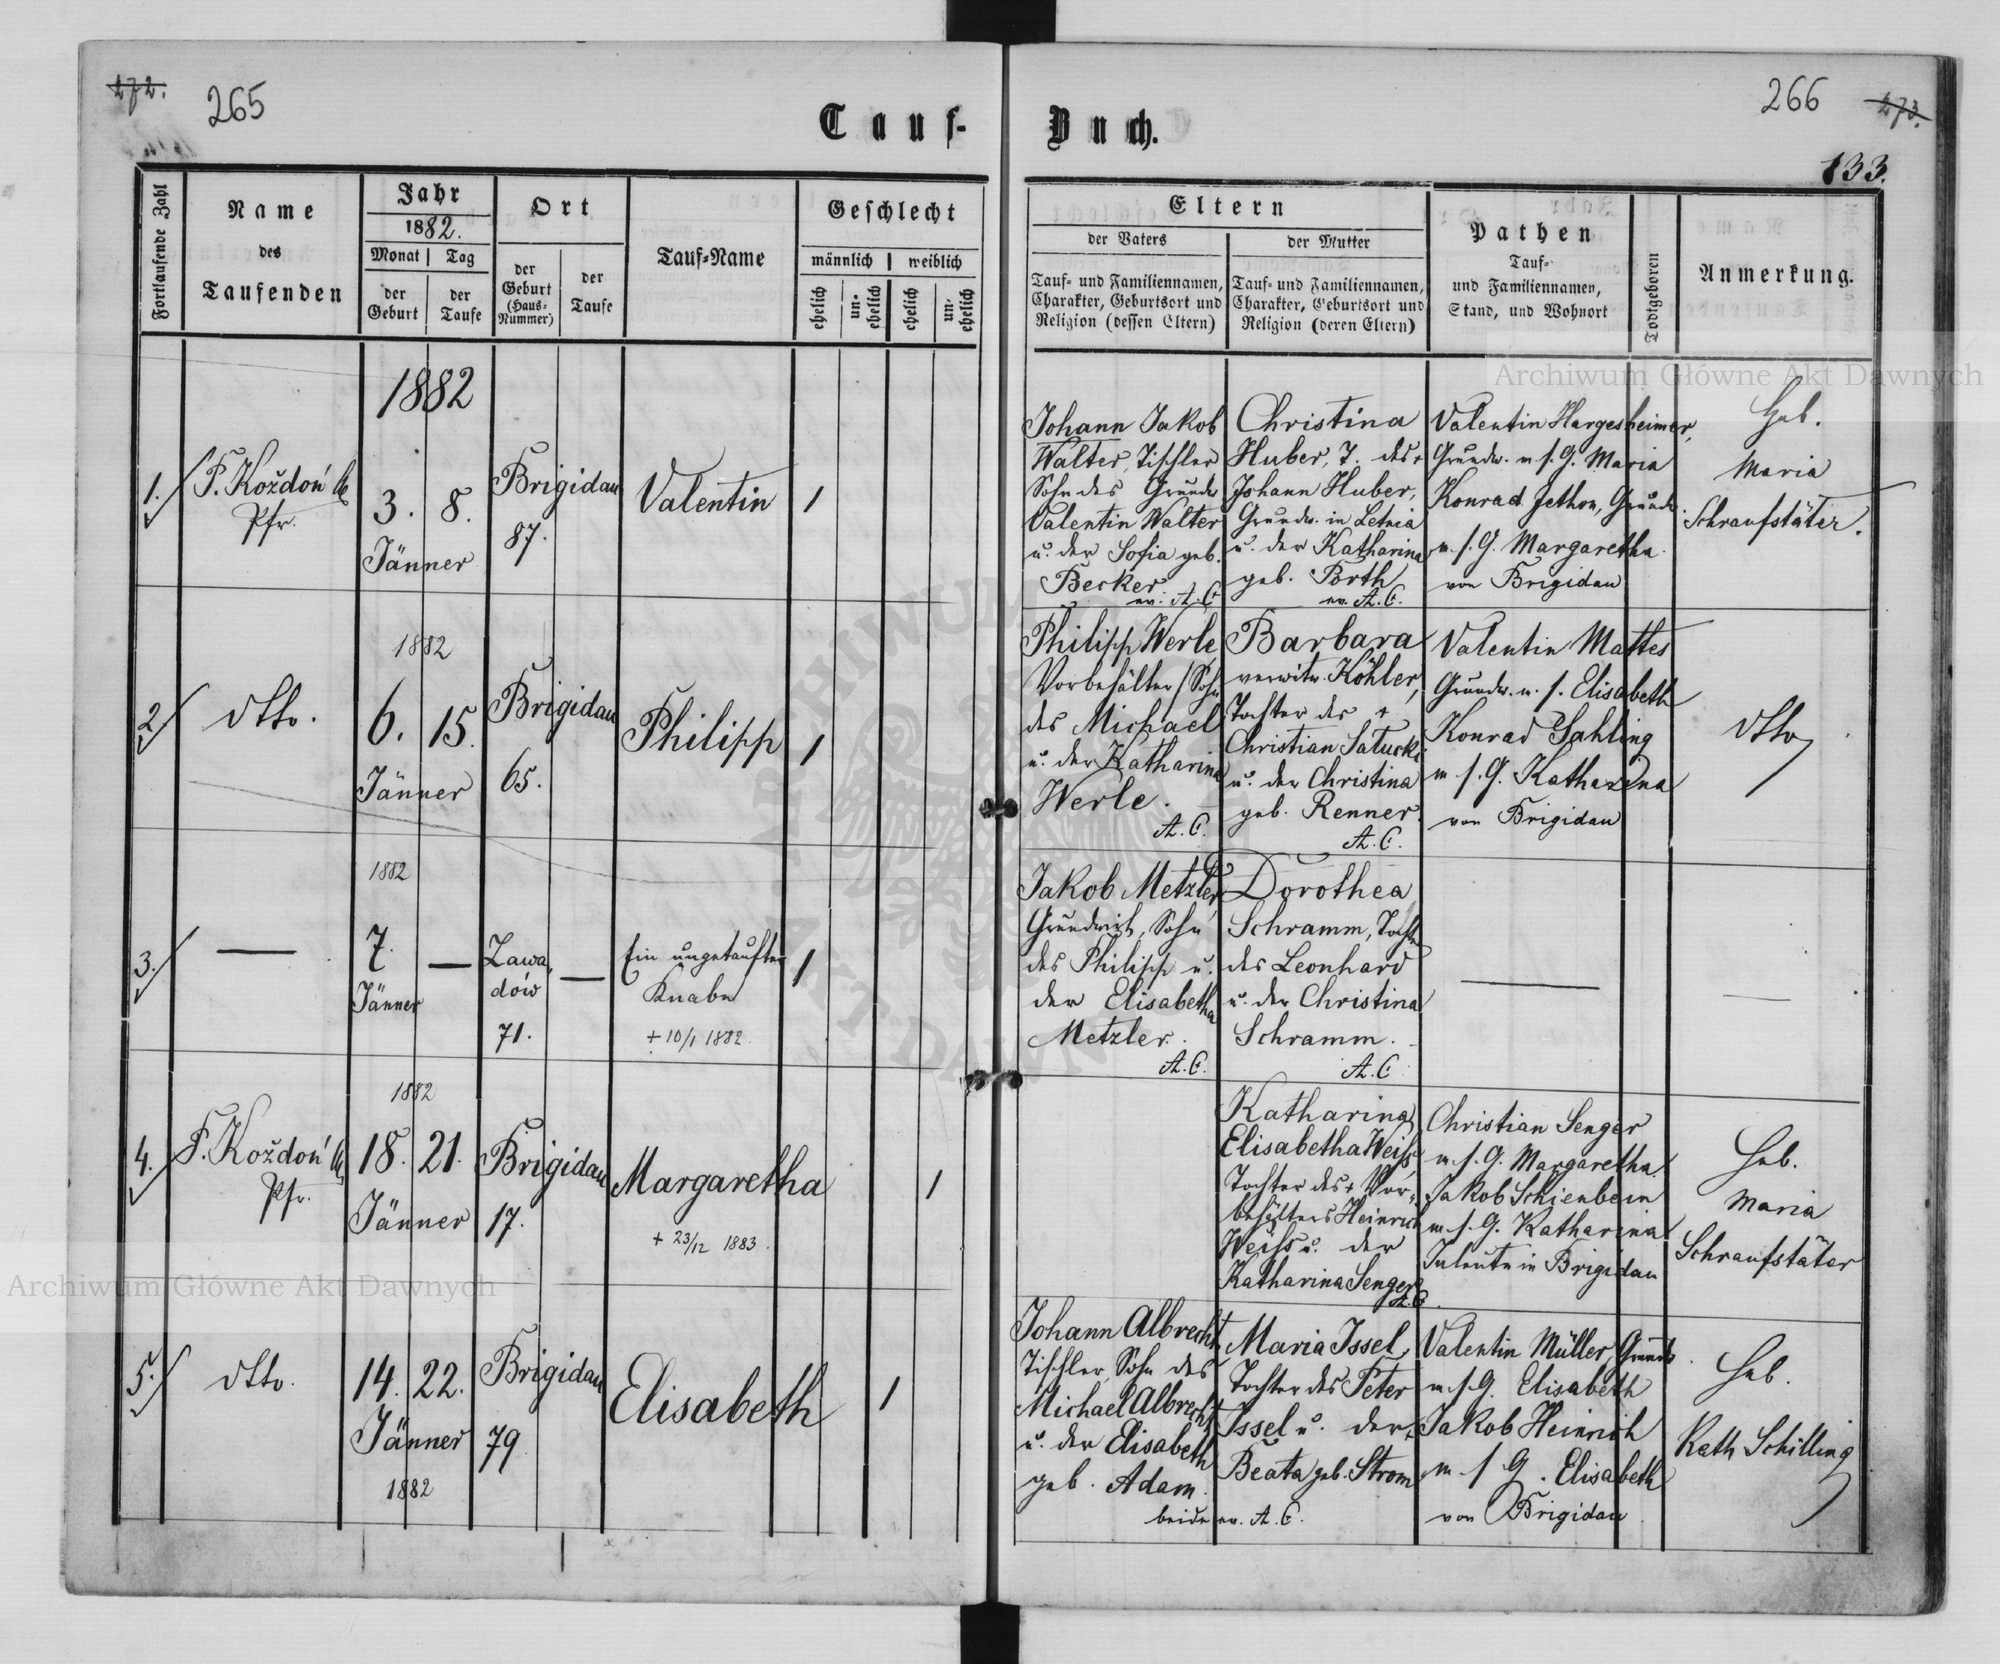 272.
265
266
273.
Tauf-
Buch.
133.
Fortlaufende Zahl
Name
des
Taufenden
Jahr
1882.
Monat | Tag
der Geburt
der Taufe
Ort
der Geburt (Haus-Nummer)
der Taufe
Tauf-Name
Geschlecht
männlich | weiblich
ehelich
un-ehelich
ehelich
un-ehelich
Eltern
der Vaters
Tauf- und Familiennamen,
Charakter, Geburtsort und
Religion (dessen Eltern)
der Mutter
Tauf- und Familiennamen,
Charakter, Geburtsort und
Religion (deren Eltern)
Pathen
Tauf-
und Familiennamen,
Stand, und Wohnort
Todtgeboren
Anmerkung.
1882
1.
F. Koždoń
Pfr.
3. 8.
Jänner
Brigidau
87.
Valentin
1
Johann Jakob
Walter, Tischler
Sohn des Grundw.
Valentin Walter
u. der Sofia geb.
Becker
ev. A. C.
Christina
Huber, T. des +
Johann Huber,
Grundw. in Letnia
u. der Katharina
geb. Porth
ev. A. C.
Valentin Hargesheimer,
Grundw. m s. G. Maria
Konrad Jethon, Grundw.
m. s. G. Margaretha
von Brigidau
Heb.
Maria
Schraufstäter.
1882
2
dtto.
6. 15.
Jänner
Brigidau
65.
Philipp
1
Philipp Werle
Vorbehälter, Sohn
des Michael
u. der Katharina
Werle.
A. C.
Barbara
verwitw. Köhler,
Tochter des +
Christian
u. der Christina
geb. Renner.
A. C.
Valentin Mattes
Grundw. m. s. Elisabeth
Konrad Sahling
m s. G. Katharina
von Brigidau
dtto
1882
3.
7.
Jänner
Zawa-
dów
71.
Ein ungetaufter
Knabe
+ 10/1 1882
1
Jakob Metzler,
Grundwirt, Sohn
des Philipp u.
der Elisabetha
Metzler.
A. C.
Dorothea
Schramm, Tochter
des Leonhard
u. der Christina
Schramm.
A. C.
1882
4.
F. Koždoń
Pfr.
18. 21.
Jänner
Brigidau
17.
Margaretha
+ 23/12 1883.
1
Katharina
Elisabetha Weiss,
Tochter des + Vor-
behälters Heinrich
Weiss u. der
Katharina Senger
A. C.
Christian Senger
m. s. G. Margaretha.
Jakob Schienbein
m. s. G. Katharina
Inleute in Brigidau
Heb.
Maria
Schraufstäter
5.
dtto.
14. 22.
Jänner
1882
Brigidau
79
Elisabeth
1
Johann Albrecht,
Tischler, Sohn des
Michael Albrecht
u. der Elisabeth
geb. Adam.
beide ev. A. C.
Maria Issel,
Tochter des Peter
Issel u. der +
Beata geb. Strom
Valentin Müller Grundw.
m s G. Elisabeth
Jakob Heinrich
m s G. Elisabeth
von Brigidau
Heb.
Kath Schilling
Archiwum Główne Akt Dawnych
Archiwum Główne Akt Dawnych
ARCHIWUM
AKT DAWNYCH